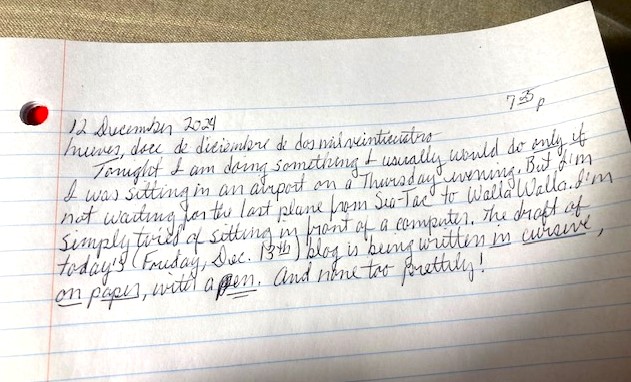 7:35 p
12 December 2024
jueves, doce de diciembre de dos mil veinticuatro
Tonight I am doing something I usually would do only if
I was sitting in an airport on a Thursday evening. But I'm
not waiting for the last plane from Sea-Tac to Walla Walla. I'm
simply tired of sitting in front of a computer. The draft of
today's (Friday, Dec. 13th) blog is being written in cursive,
on paper, with a pen. And none too prettily!